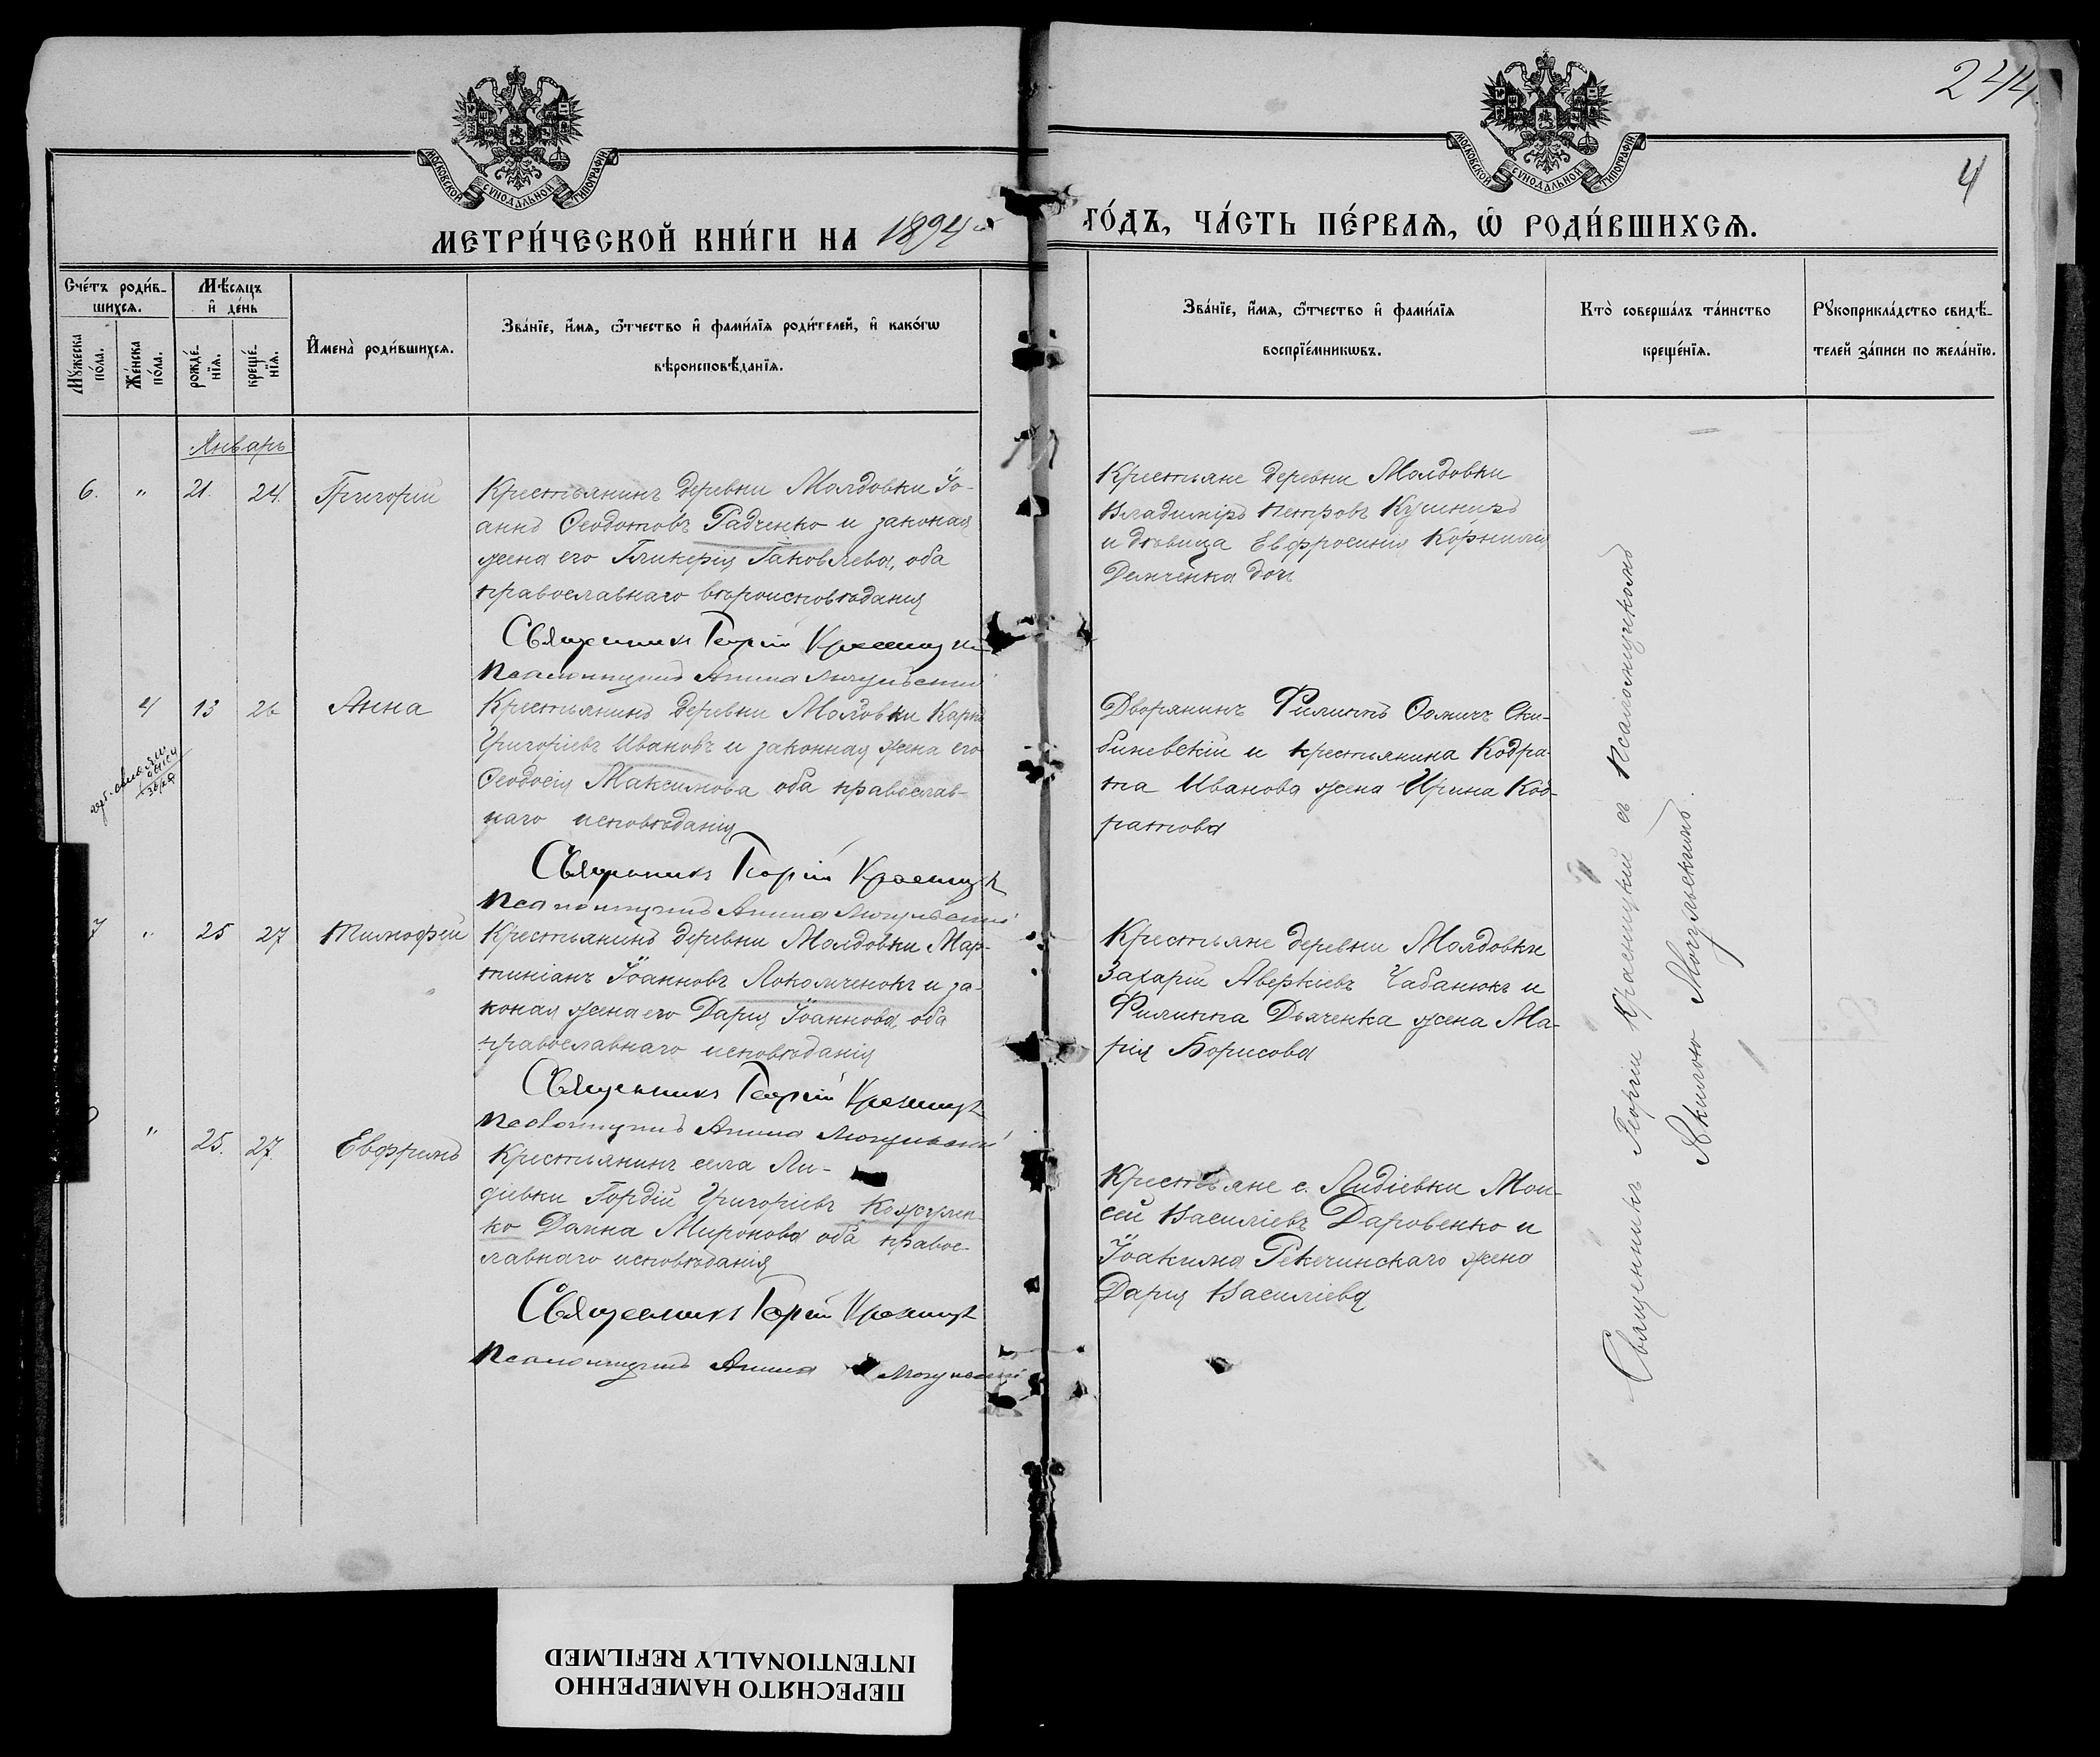 244
4
МОСКОВСКОЙ СѴНОДАЛЬНОЙ ТИПОГРАФІИ
МОСКОВСКОЙ СѴНОДАЛЬНОЙ ТИПОГРАФІИ
МЕТРИ́ЧЕСКОЙ КНИ́ГИ НА 1894й
ГО́ДЪ, ЧА́СТЬ ПЕ́РВАѦ, Ѡ҆ РОДИ́ВШИХСѦ.
Счётъ роди́в-
шихсѧ.
Мꙋ́жеска по́ла.
Же́нска по́ла.
Мѣ́сѧцъ
и҆ де́нь
рожде́-
нїѧ.
креще́-
нїѧ.
И҆мена̀ роди́вшихсѧ.
Зва́нїе, и҆́мѧ, ѻ҆́тчество и҆ фами́лїѧ роди́телей, и҆ како́гѡ
вѣроисповѣ́данїѧ.
Зва́нїе, и҆́мѧ, ѻ҆́тчество и҆ фами́лїѧ
воспрїе́мникѡвъ.
Кто̀ соверша́лъ та́инство
креще́нїѧ.
Рꙋкоприкла́дство свидѣ́-
телей за́писи по жела́нїю.
Январь
6. " 21. 24. Григорій
Крестьянинъ деревни Молдовки Іо-
аннъ Ѳеодотовъ Радченко и законая
жена его Гликерія Іаковлева, оба
православнаго вѣроисповѣданія
Священникъ Георгій Красницкій
Псаломщикъ Акила Могульскій
Крестьяне деревни Молдовки
Владиміръ Петровъ Кушниръ
и дѣвица Евфросинія Корнилія
Демченка дочь
4 13 26 Анна
Крестьянинъ деревни Молдовки Карпъ
Григоріевъ Ивановъ и законная жена его
Ѳеодосія Максимова оба православ-
наго исповѣданія
Священникъ Георгій Красницк
Псаломщикъ Акила Могульскій
Дворянинъ Филиппъ Ѳомичъ Ски-
биневскій и крестьянина Кодра-
та Иванова жена Ирина Код-
ратова
7 " 25 27 Тимофей
Крестьянинъ деревни Молдовки Мар-
тиніанъ Іоанновъ Локомченокъ и за-
коная жена его Дарія Іоаннова, оба
православнаго исповѣданія
Священникъ Георгій Красницк
Псаломщикъ Акила Могульскій
Крестьяне деревни Молдовки
Захарій Аверкіевъ Чабанюкъ и
Филиппа Дьяченка жена Ма-
рія Борисова
" 25. 27. Евфримъ
Крестьянинъ села Ли-
діевки Гордій Григоріевъ Кожулен-
ко Домна Миронова оба правос-
лавнаго исповѣданія
Священникъ Георгій Красницк
Псаломщикъ Акила Могульскій
Крестьяне с. Лидіевки Мои-
сей Василіевъ Даровенко и
Іоакима Рекечинскаго жена
Дарія Василіева
Священникъ Георгій Красницкій съ псаломщикомъ
Акилою Могульскимъ.
ПЕРЕСНЯТО НАМЕРЕННО
INTENTIONALLY REFILMED